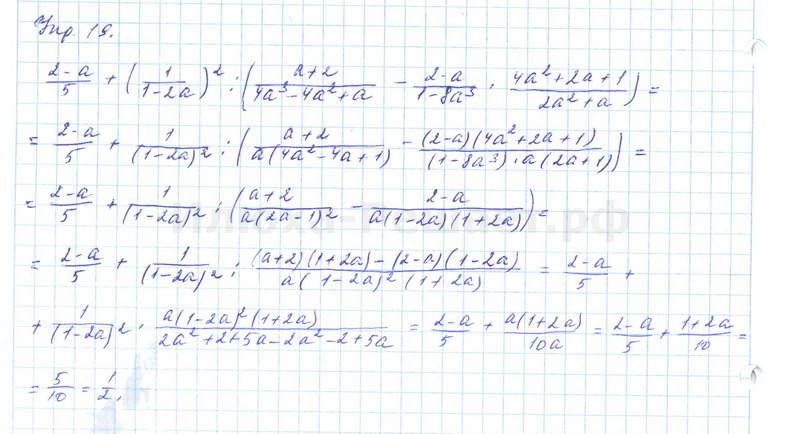 Упр. 19.
(2-a)/5 + (1/(1-2a))² : ((a+2)/(4a³-4a²+a) - (2-a)/(1-8a³) · (4a²+2a+1)/(2a²+a)) =
= (2-a)/5 + 1/(1-2a)² : ((a+2)/(a(4a²-4a+1)) - ((2-a)(4a²+2a+1))/((1-8a³)·a(2a+1))) =
= (2-a)/5 + 1/(1-2a)² : ((a+2)/(a(2a-1)²) - (2-a)/(a(1-2a)(1+2a))) =
= (2-a)/5 + 1/(1-2a)² : ((a+2)(1+2a)-(2-a)(1-2a))/(a(1-2a)²(1+2a)) = (2-a)/5 +
+ 1/(1-2a)² · (a(1-2a)²(1+2a))/(2a²+2+5a-2a²-2+5a) = (2-a)/5 + (a(1+2a))/(10a) = (2-a)/5 + (1+2a)/10 =
= 5/10 = 1/2.